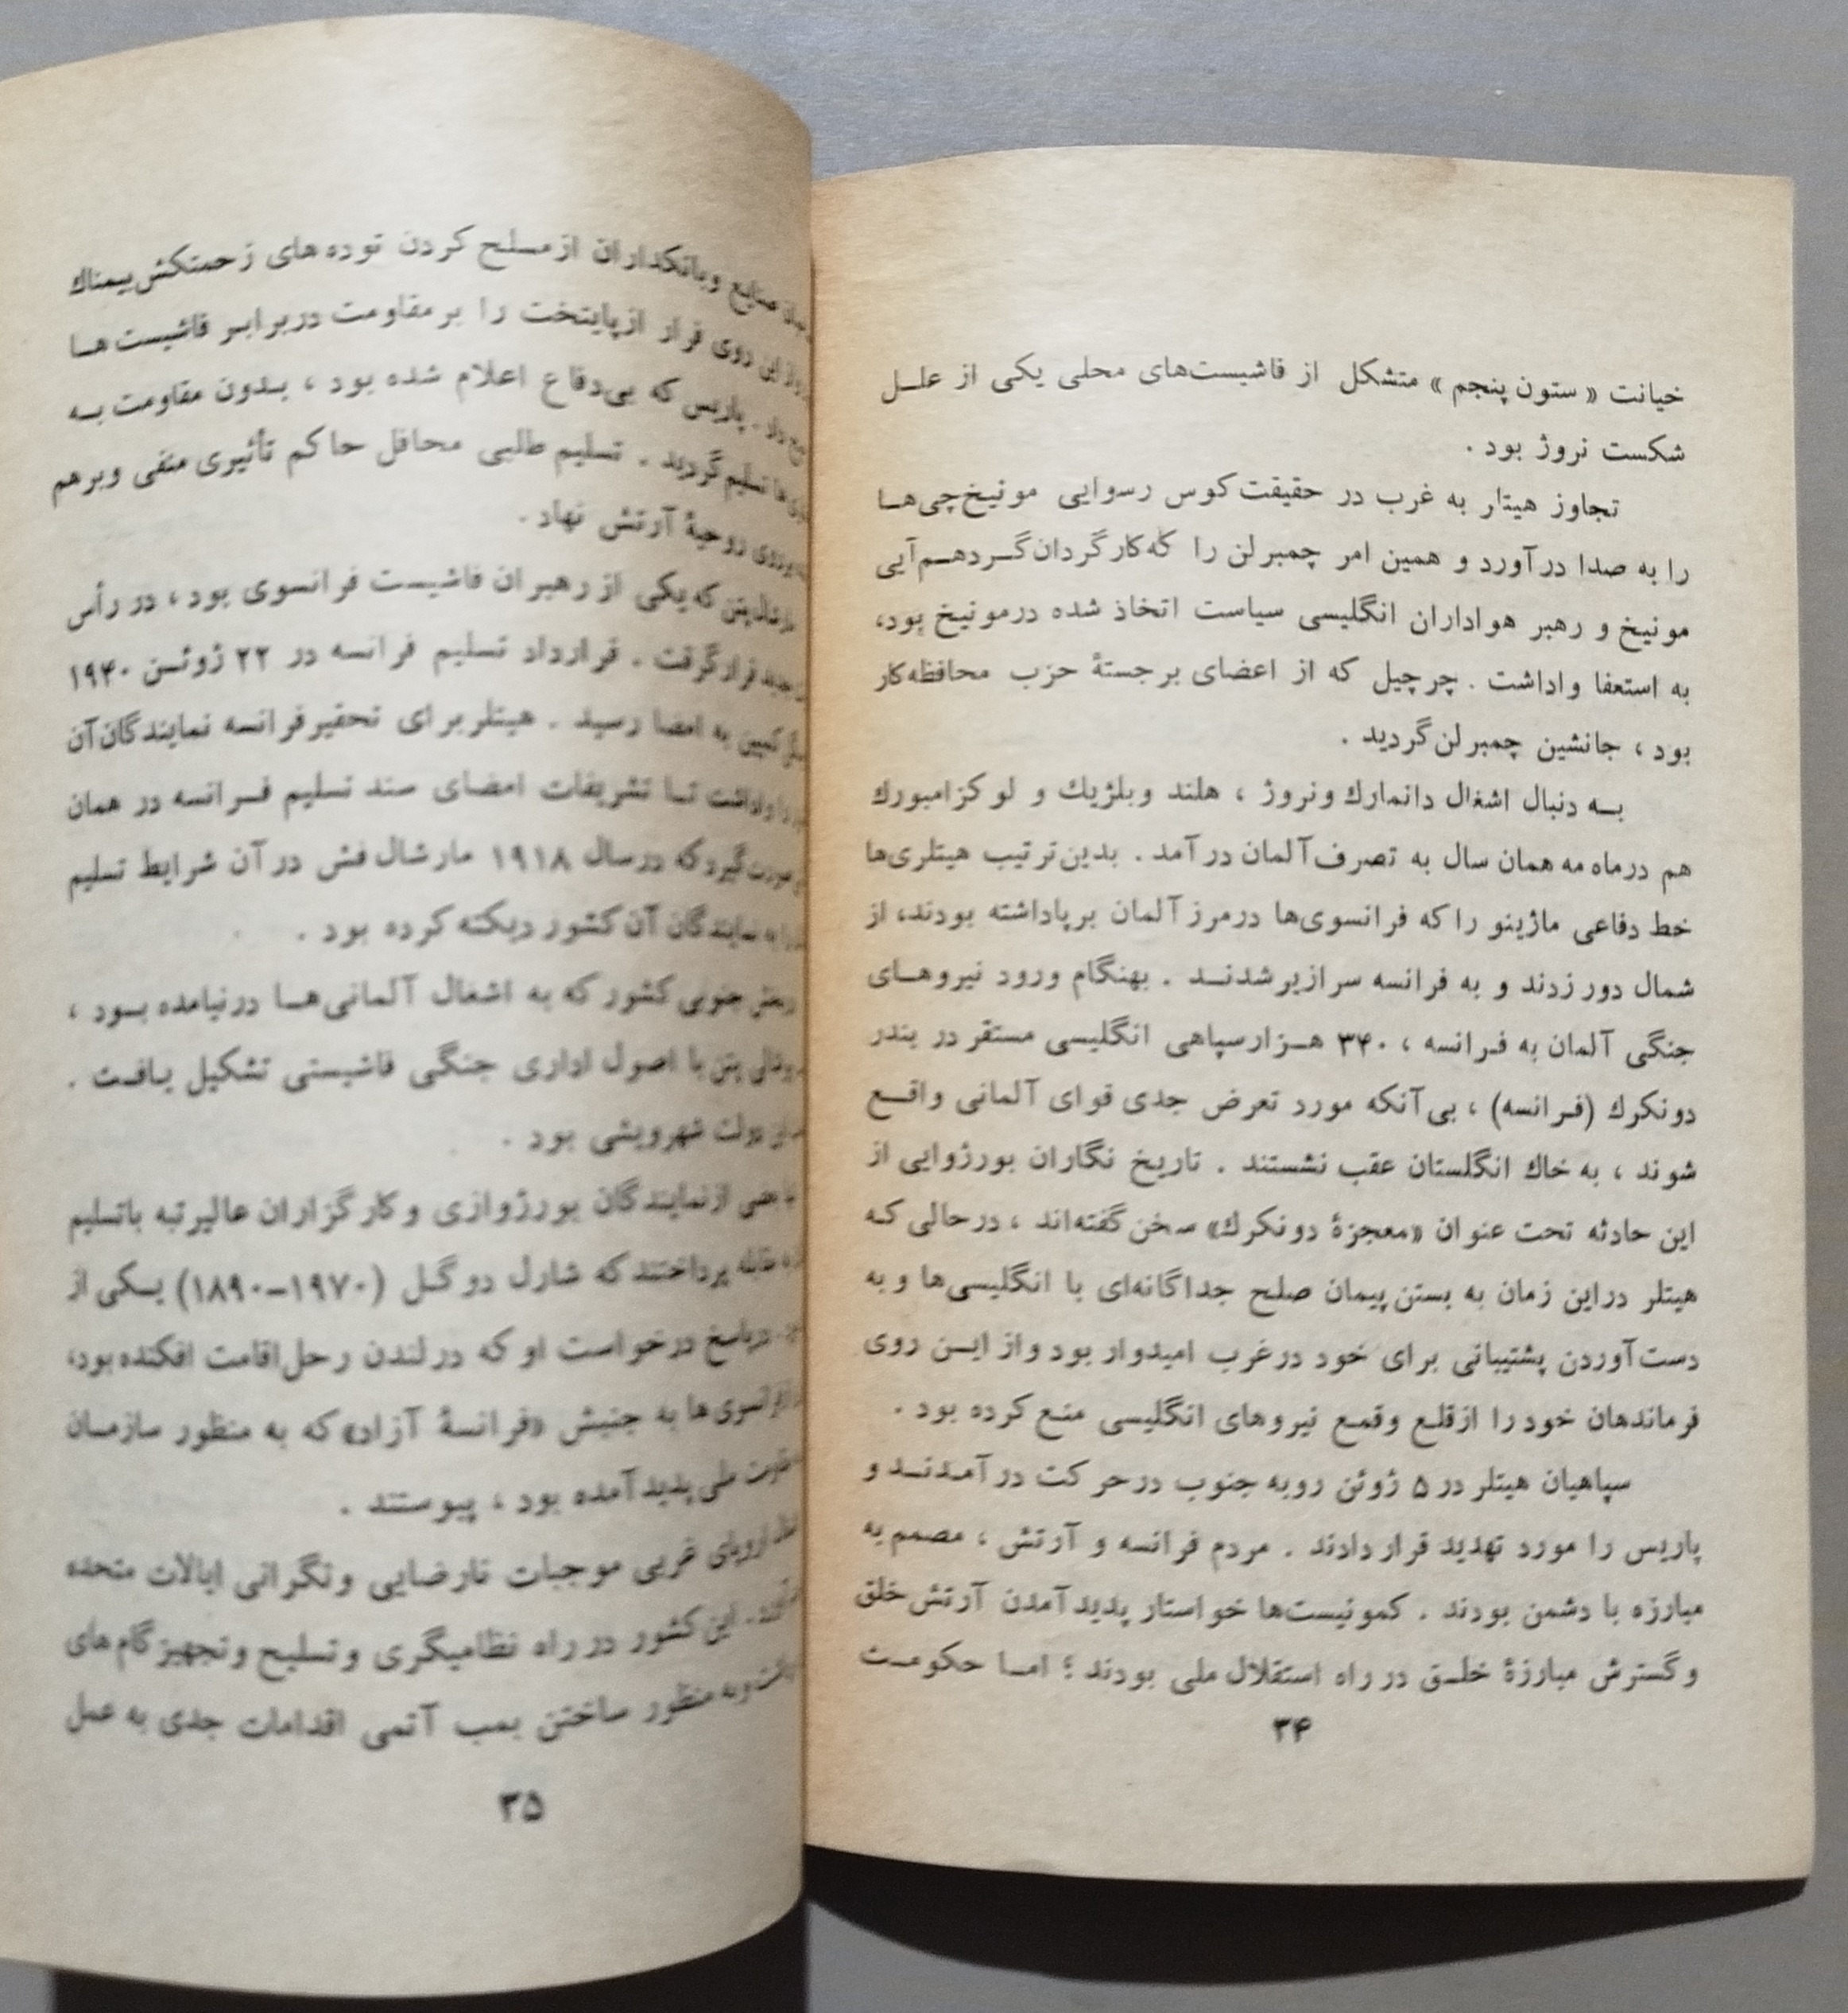 خیانت « ستون پنجم » متشکل از فاشیست‌های محلی یکی از علـل
شکست نروژ بود .
تجاوز هیتلر به غرب در حقیقت کوس رسوایی مونیخ‌چی‌هـا
را به صدا درآورد و همین امر چمبرلن را که‌کارگردان‌گـردهـم‌آیی
مونیخ و رهبر هواداران انگلیسی سیاست اتخاذ شده درمونیخ بود،
به استعفا واداشت . چرچیل که از اعضای برجستهٔ حزب محافظه‌کار
بود ، جانشین چمبرلن‌گردید .
بـه دنبال اشغال دانمارك ونروژ ، هلند وبلژیك و لوکزامبورك
هم درماه مه همان سال به تصرف‌آلمان درآمد . بدین‌ترتیب هیتلری‌ها
خط دفاعی ماژینو را که فرانسوی‌ها درمرز آلمان برپاداشته بودند، از
شمال دور زدند و به فرانسه سرازیر شدنـد . بهنگام ورود نیروهـای
جنگی آلمان به فـرانسه ، ۳۴۰ هـزارسپاهی انگلیسی مستقر در بندر
دونکرك (فـرانسه) ، بی‌آنکه مورد تعرض جدی قوای آلمانی واقـع
شوند ، به خاك انگلستان عقب نشستند . تاریخ نگاران بورژوایی از
این حادثه تحت عنوان «معجزهٔ دونکرك» سخن‌گفته‌اند ، درحالی کـه
هیتلر دراین زمان به بستن پیمان صلح جداگانه‌ای با انگلیسی‌ها و به
دست‌آوردن پشتیبانی برای خود درغرب امیدوار بود و از ایـن روی
فرماندهان خود را ازقلـع وقمـع نیروهای انگلیسی منـع کرده بود .
سپاهیان هیتلر در ۵ ژوئن روبه جنوب درحرکت درآمـدنـد و
پاریس را مورد تهدید قرار دادند . مردم فرانسه و آرتش ، مصمم به
مبارزه با دشمن بودند . کمونیست‌ها خواستار پدیدآمدن آرتش‌خلق
وگسترش مبارزهٔ خلـق در راه استقلال ملی بودند ؛ امـا حکومـت
۳۴
صنایع وبانکداران ازمسلـح کردن توده‌های زحمتکش‌بیمناك
این روی فرار ازپایتخت را برمقاومت دربرابـر فاشیست‌هـا
داد . پاریس که بی‌دفاع اعلام شده بود ، بـدون مقاومت بـه
تسلیم گردید . تسلیم طلبی محافل حاکم تأثیری منفی وبرهم
روحیهٔ آرتش نهاد .
که‌یکی از رهبران فاشیست فرانسوی بود ، در رأس
قرارگرفت . قرارداد تسلیم فرانسه در ۲۲ ژوئـن ۱۹۴۰
به امضا رسید . هیتلربرای تحقیرفرانسه نمایندگان‌آن
واداشت تـا تشریفات امضـای سند تسلیم فـرانسه در همان
گیرد که درسال ۱۹۱۸ مارشال فش درآن شرایط تسلیم
نمایندگان آن‌کشور دیکته کرده بود .
جنوبی کشور که به اشغال آلمانی‌هـا درنیامده بـود ،
پتن با اصول اداری جنگی فاشیستی تشکیل یـافـت .
دولت شهرویشی بود .
ازنمایندگان بورژوازی وکارگزاران عالیرتبه باتسلیم
پرداختند که شارل دوگـل (۱۹۷۰-۱۸۹۰) یـکی از
درپاسخ درخواست او که درلندن رحل‌اقامت افکنده‌بود،
به جنبش «فرانسهٔ آزاد» که به منظور سازمـان
ملی پدیدآمده بود ، پیوستند .
اروپای غربی موجبات نارضایی ونگرانی ایالات متحده
این‌کشور در راه نظامیگری وتسلیح وتجهیزگام‌های
وبه منظور ساختن بمب آتمی اقدامات جدی به عمل
۳۵